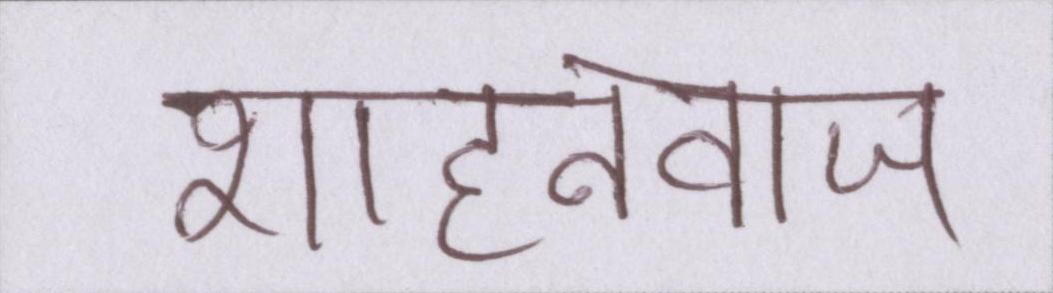 शाहनवाज